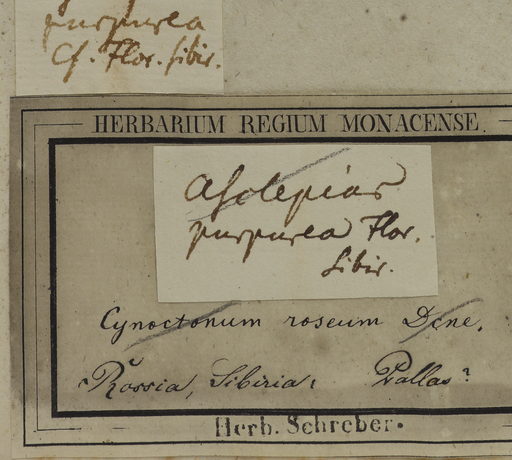 purpurea
Cf. Flor. sibir.
HERBARIUM REGIUM MONACENSE.
Asclepias
purpurea Flor.
Sibir.
Cynoctonum roseum Dcne.
Rossia, Sibiria. Pallas?
Herb. Schreber.